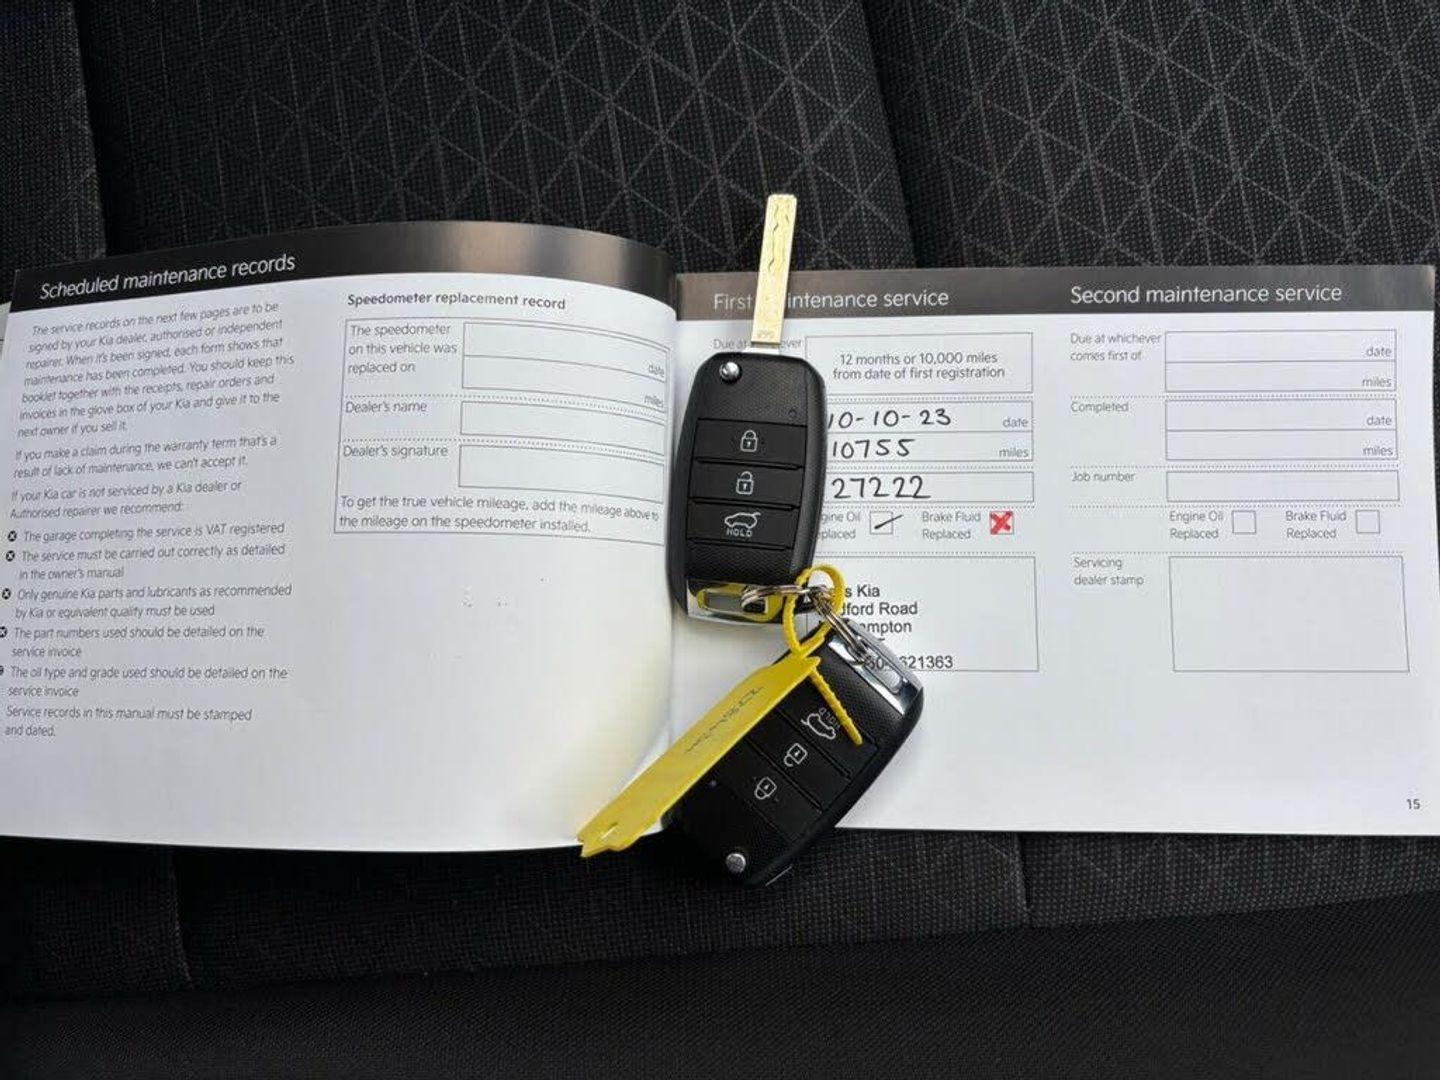 Scheduled maintenance records
The service records on the next few pages are to be
signed by your Kia dealer, authorised or independent
repairer. When it's been signed, each form shows that
maintenance has been completed. You should keep this
booklet together with the receipts, repair orders and
invoices in the glove box of your Kia and give it to the
next owner if you sell it.
If you make a claim during the warranty term that's a
result of lack of maintenance, we can't accept it.
If your Kia car is not serviced by a Kia dealer or
Authorised repairer we recommend:
The garage completing the service is VAT registered
The service must be carried out correctly as detailed
in the owner's manual
Only genuine Kia parts and lubricants as recommended
by Kia or equivalent quality must be used
The part numbers used should be detailed on the
service invoice
The oil type and grade used should be detailed on the
service invoice
Service records in this manual must be stamped
and dated.
Speedometer replacement record
The speedometer
on this vehicle was
replaced on
date
miles
Dealer's name
Dealer's signature
To get the true vehicle mileage, add the mileage above to
the mileage on the speedometer installed.
First intenance service
Due at
12 months or 10,000 miles
from date of first registration
10-10-23 date
10755 miles
27222
gine Oil
placed
Brake Fluid
Replaced
s Kia
dford Road
ampton
621363
HOLD
HOLD
Second maintenance service
Due at whichever
comes first of
date
miles
Completed
date
miles
Job number
Engine Oil
Replaced
Brake Fluid
Replaced
Servicing
dealer stamp
15